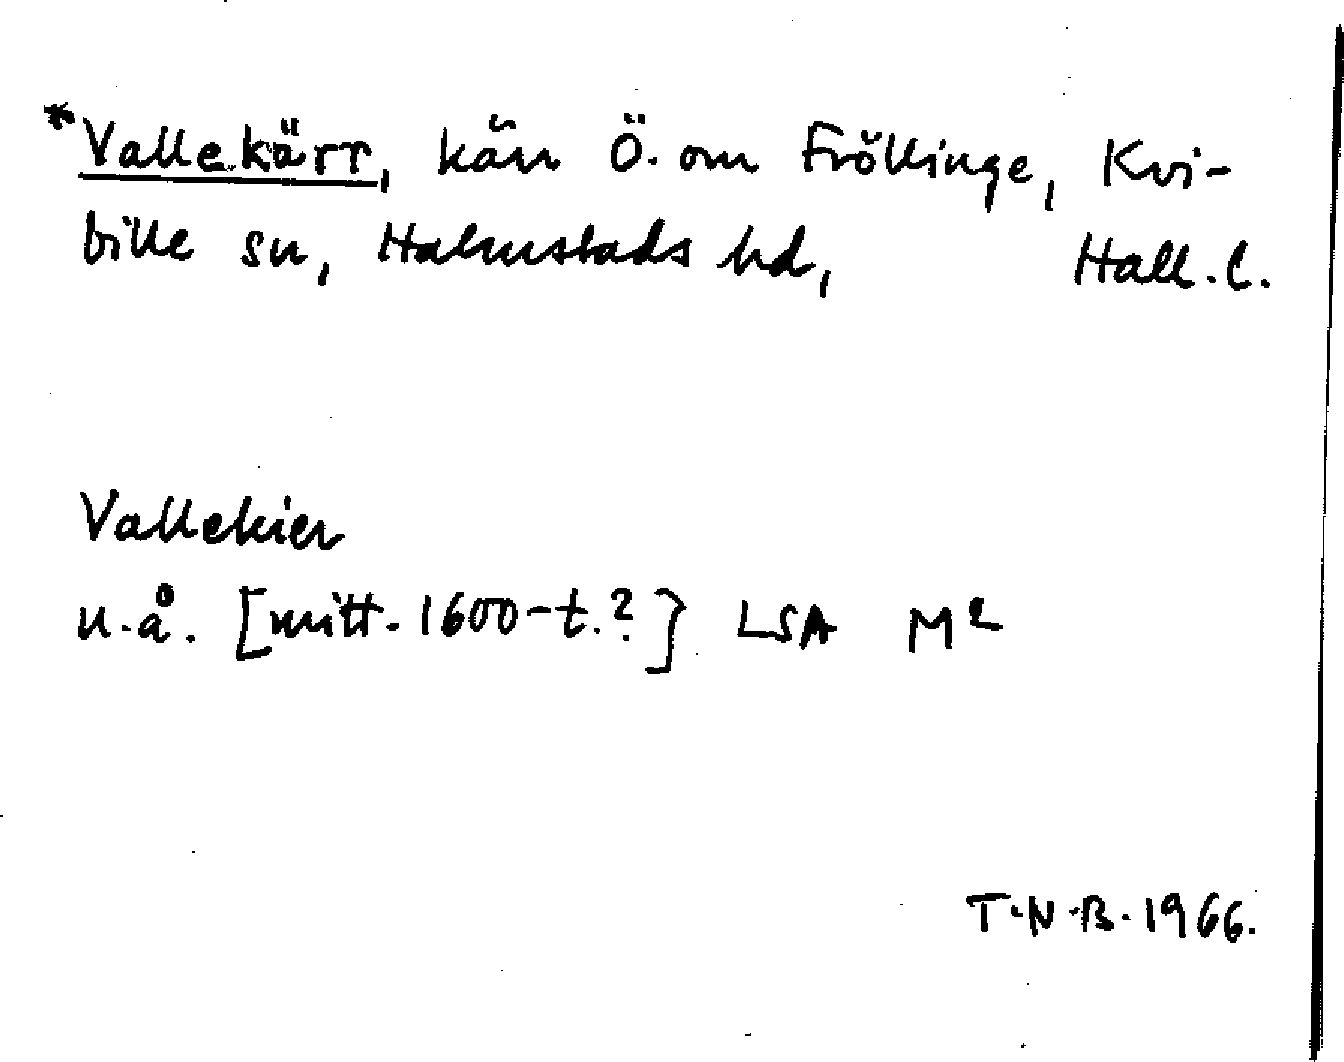 *Vallekärr, kärr Ö. om Fröllinge, Kvi-
bille sn, Halmstads hd, Hall. l.
Vallekier
u.å. [mitt. 1600-t.?] LSA M2
T.N.B. 1966.